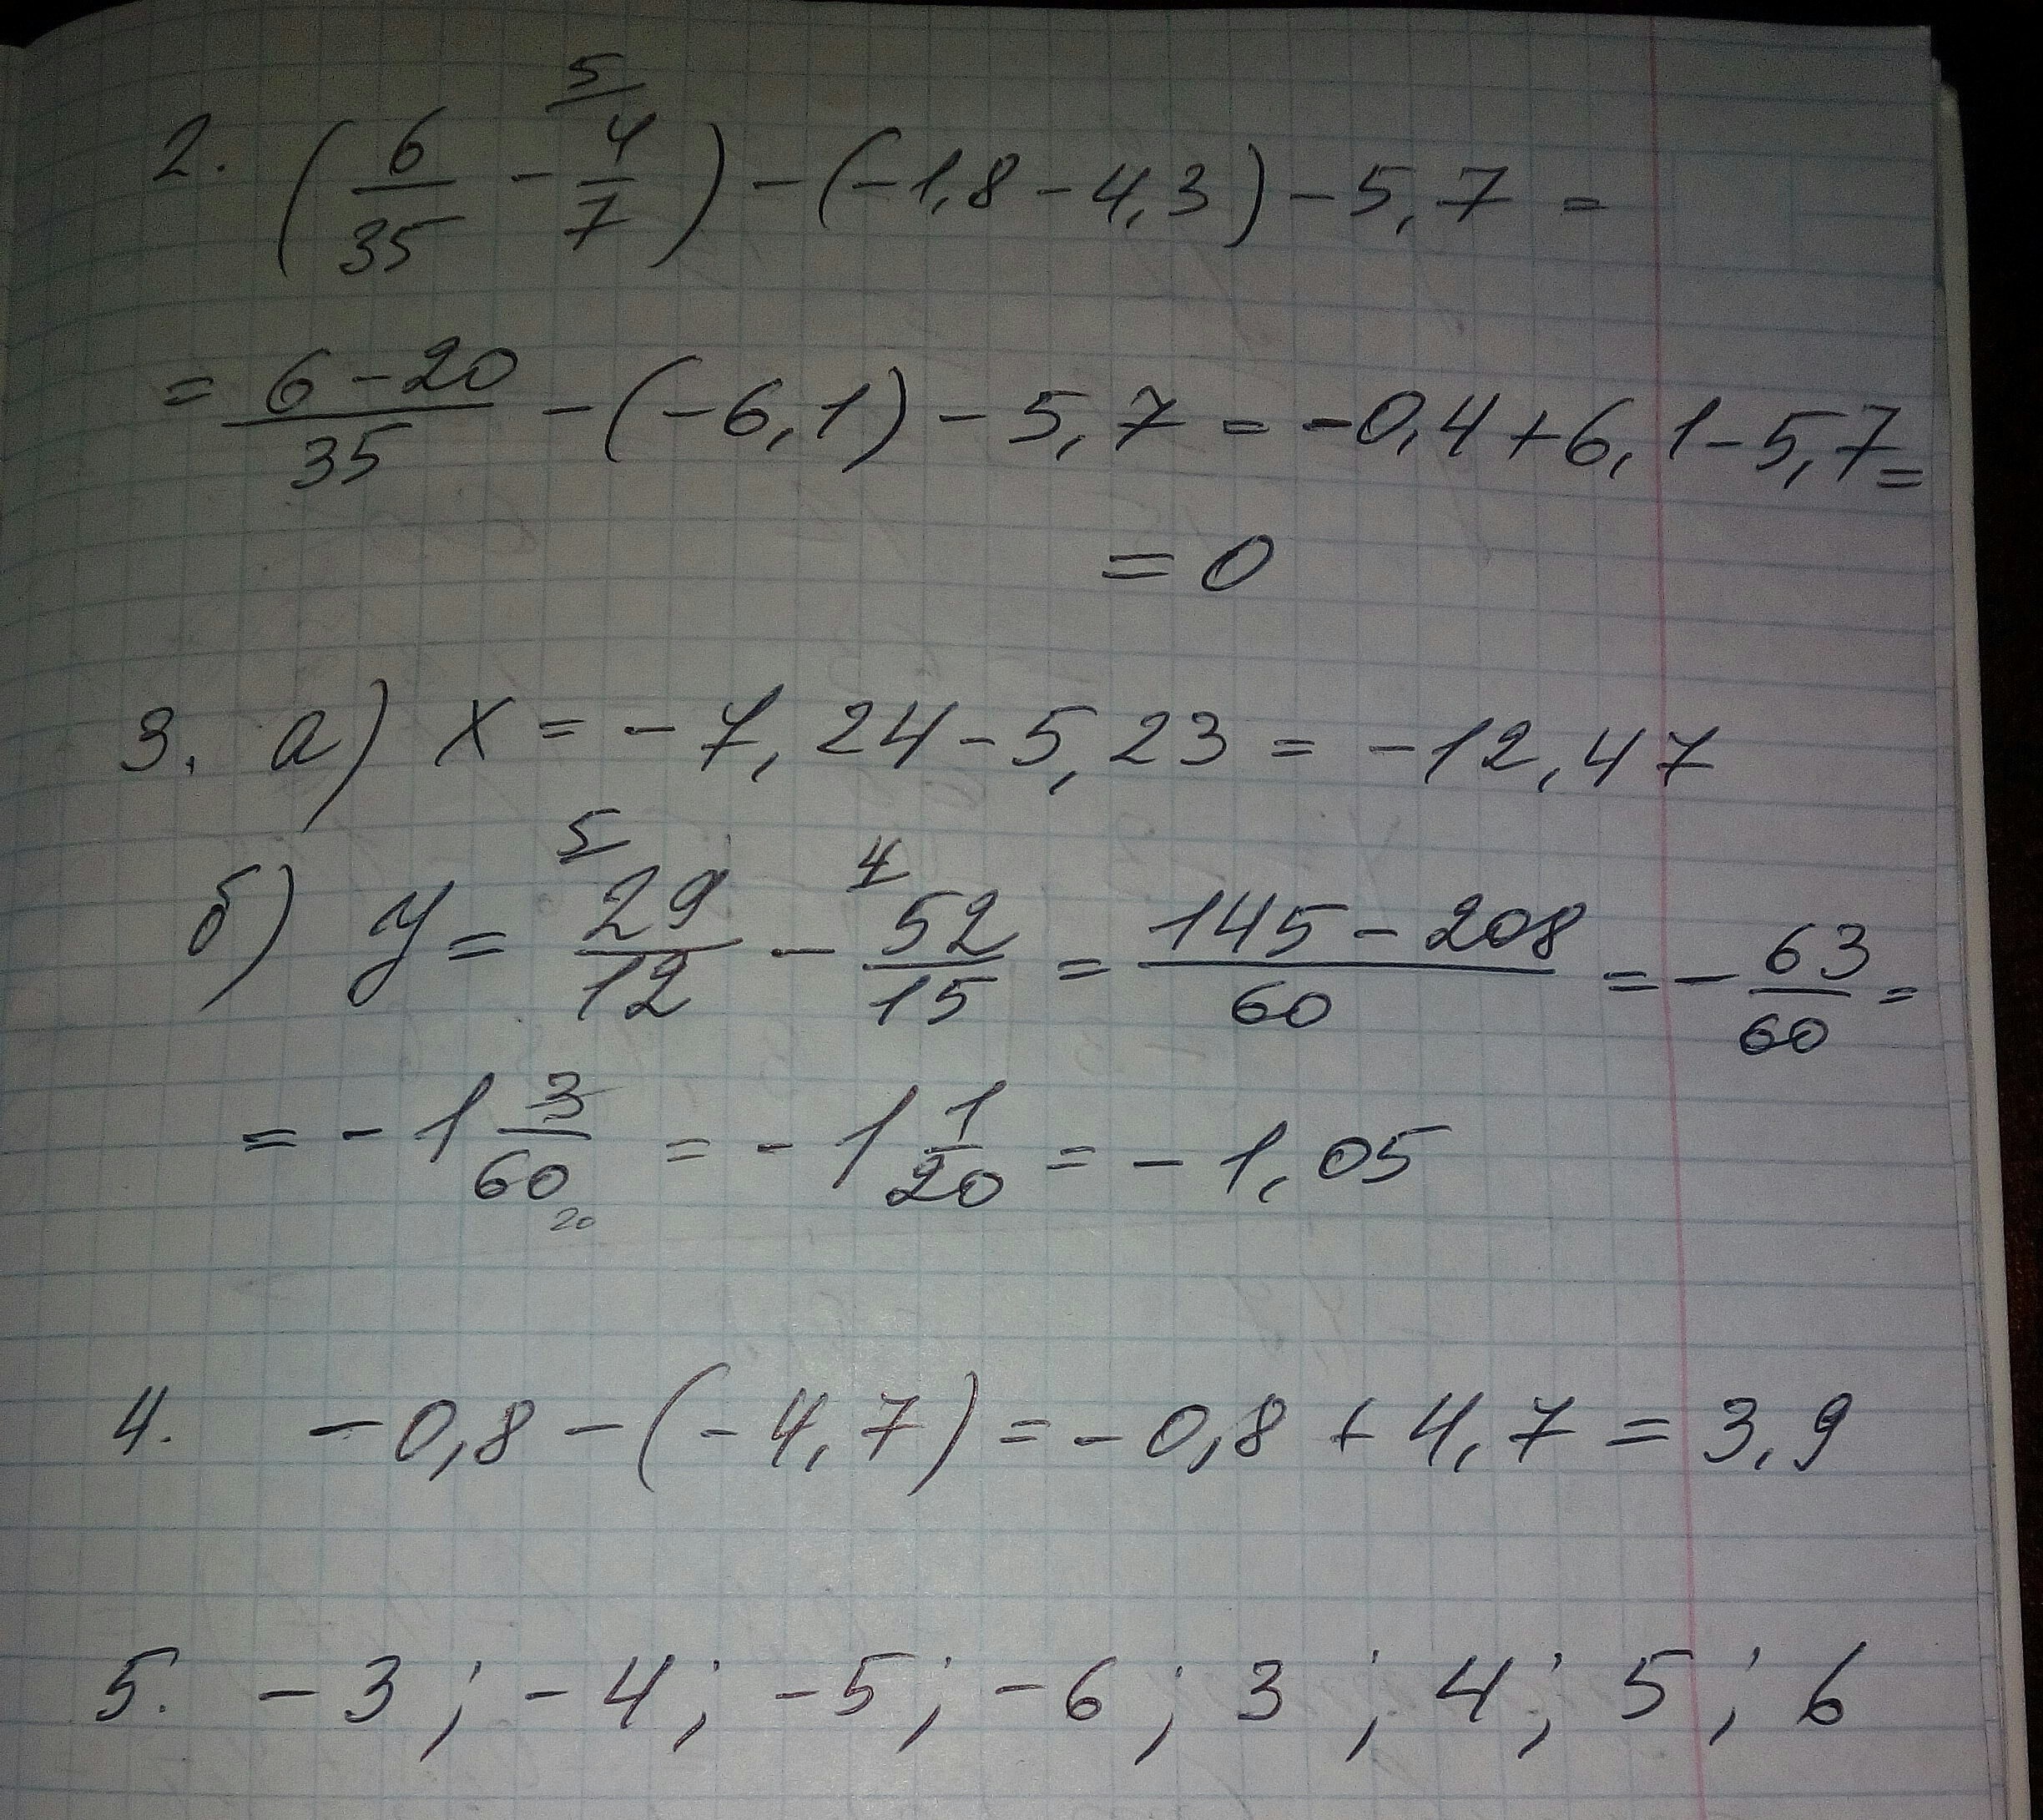 2. (6/35 - 4/7 ⁵) - (-1,8 - 4,3) - 5,7 =
= (6 - 20)/35 - (-6,1) - 5,7 = -0,4 + 6,1 - 5,7 =
= 0
3. а) x = -7,24 - 5,23 = -12,47
б) y = ⁵ 29/12 - ⁴ 52/15 = (145 - 208)/60 = - 63/60 =
= -1 3/60 20 = -1 1/20 = -1,05
4. -0,8 - (-4,7) = -0,8 + 4,7 = 3,9
5. -3; -4; -5; -6; 3; 4; 5; 6